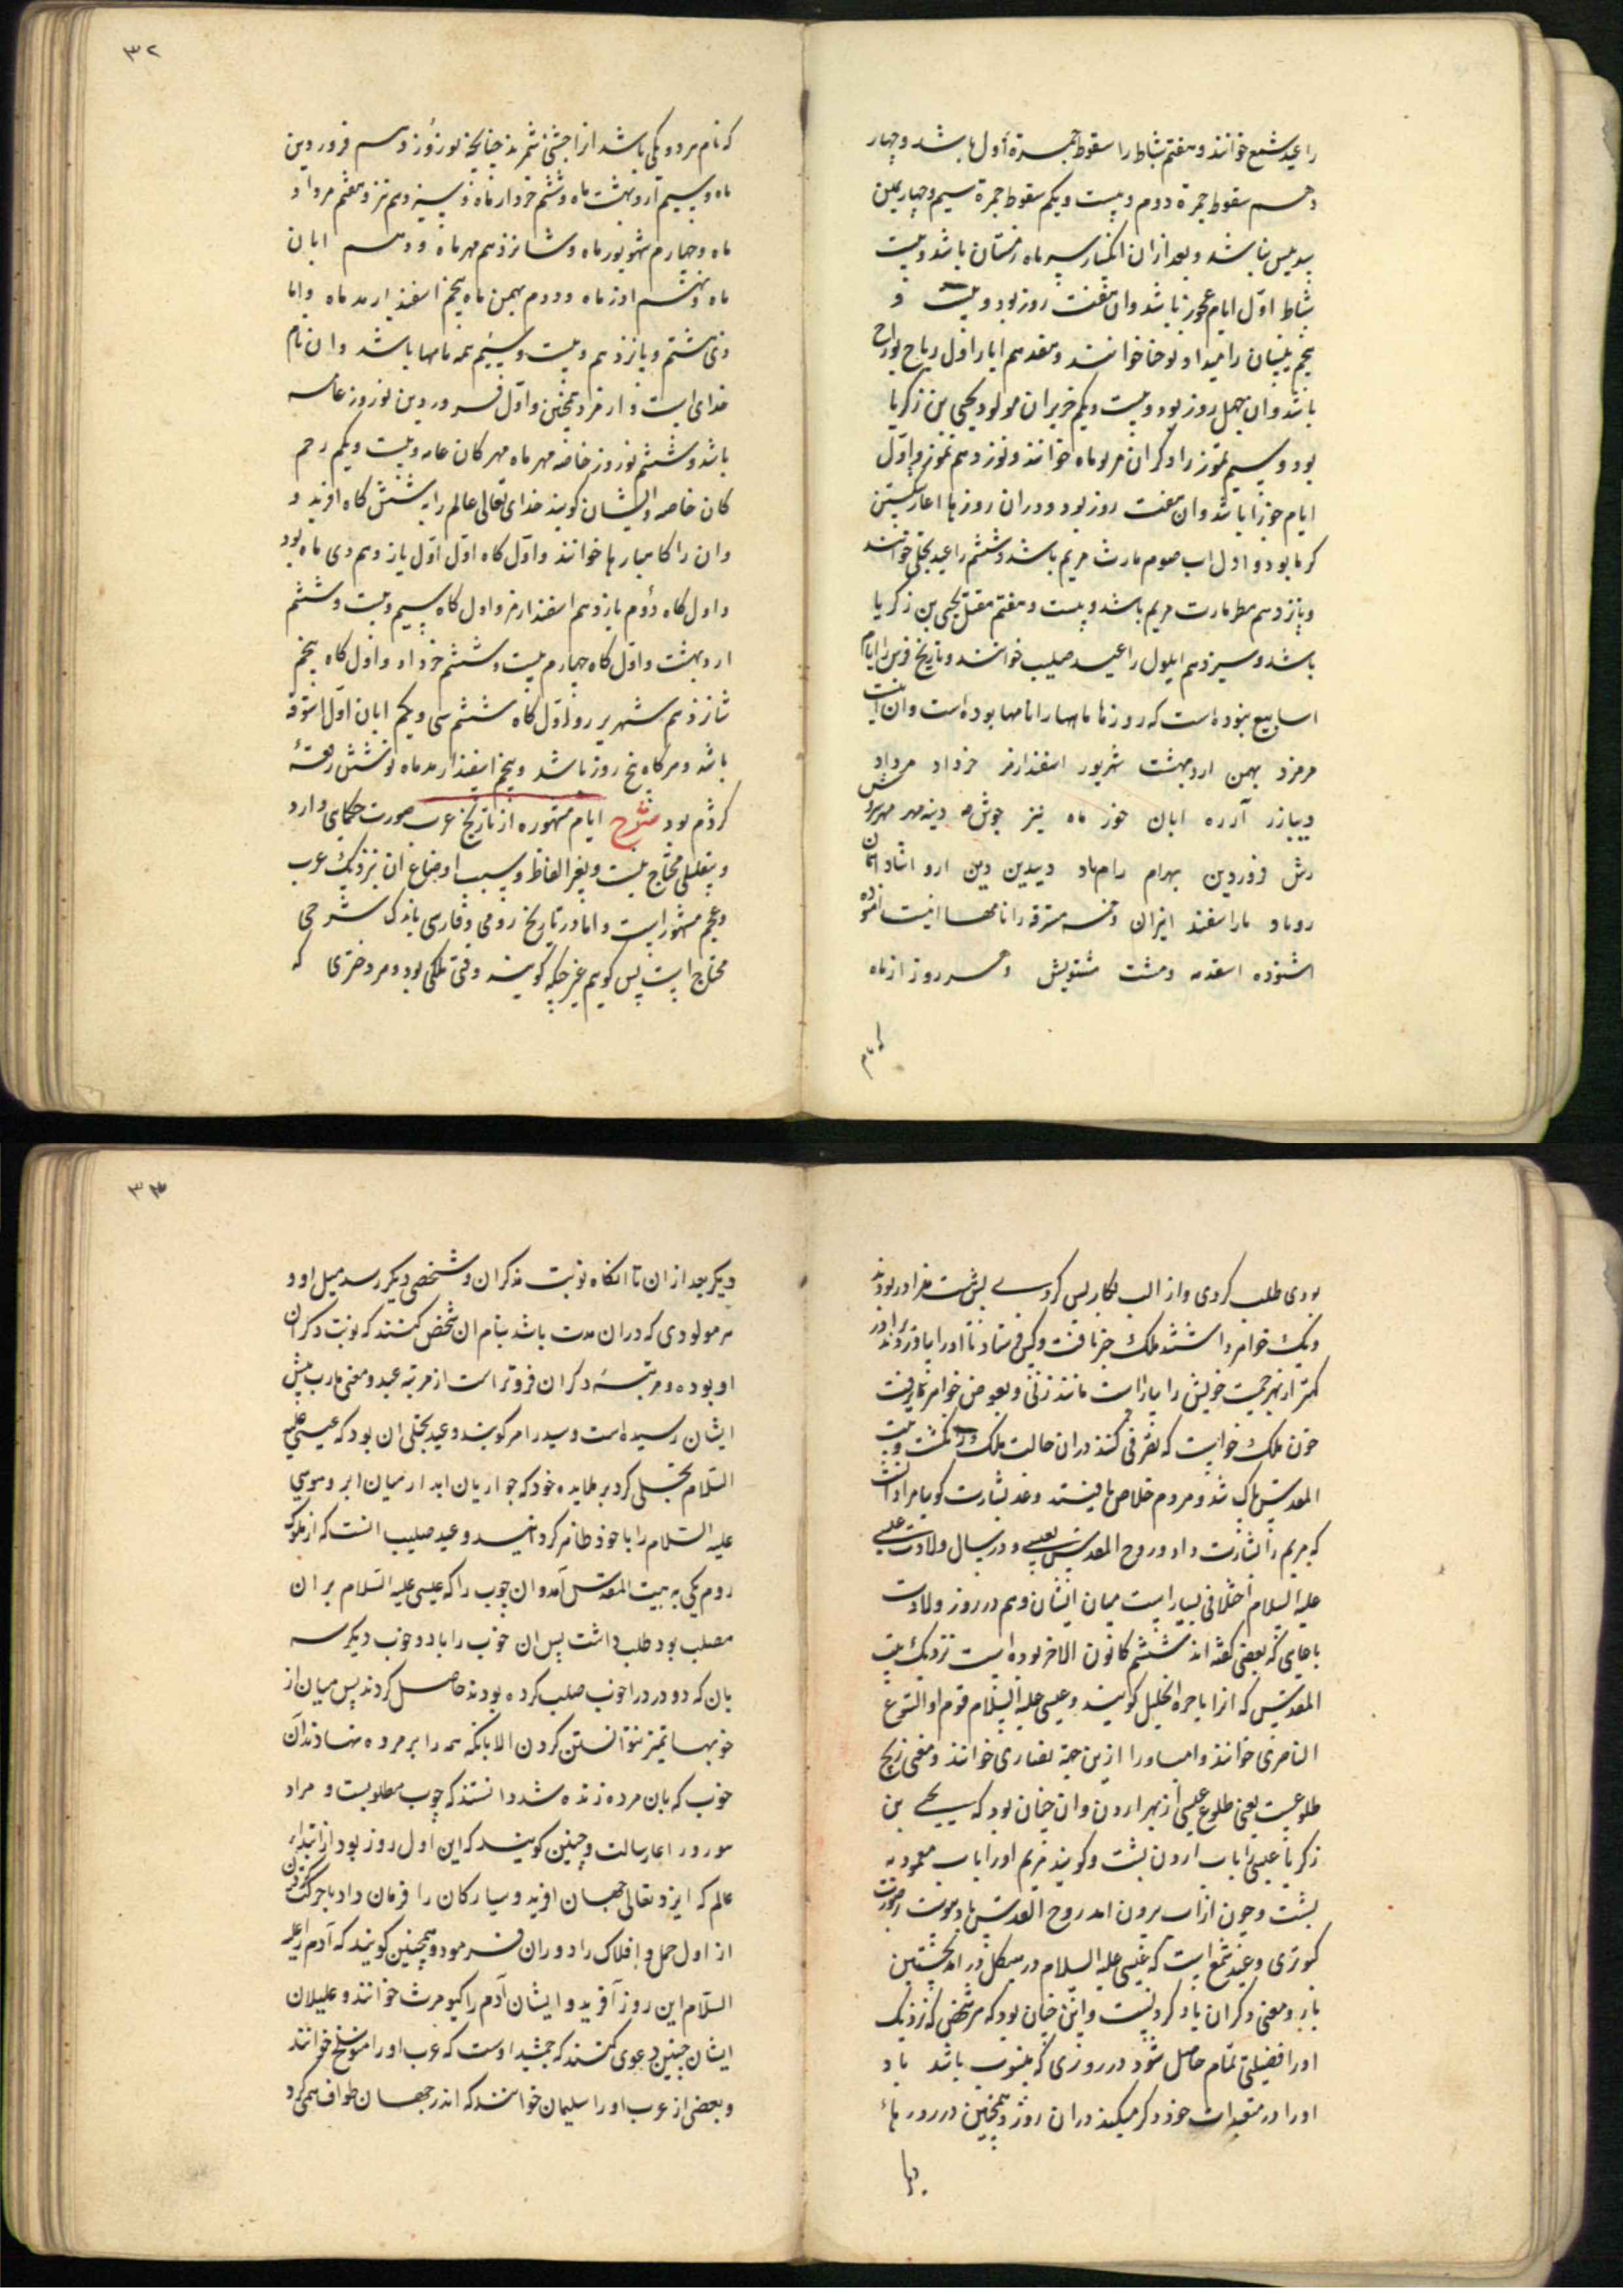 را عید شمع خوانند و هفتم شباط را سقوط جمرهٔ اول باشد و چهار
دهم سقوط جمرهٔ دوم و بیست و یکم سقوط جمرهٔ سیم و چهار یمین
بدیس باشد و بعد ازان انکسار سه ماه زمستان باشد و بیست
شباط اوّل ایام عجوز باشد وان هفت روز بود و بیست و
پنجم نیسان را میداد یوحنا خوانند و هفدهم ایار اول ریاح بوراح
باشد وان چهل روز بود و بیست و یکم حزیران مولود یحیی بن زکریا
بود و سیم تموز را دکران مریوماه خوانند و نوزدهم تموز و اوّل
ایام حوزا باشد وان هفت روز بود و دران روزها اغاز شکستن
کرما بود و اول اب صوم مارث مریم باشد و ششم را عید تجلی خوانند
و پانزدهم مطر مارت مریم باشد و بیست و هفتم مقتل یحیی بن زکریا
باشد و سیزدهم ایلول را عید صلیب خوانند و تاریخ فرس را ایام
اسابیع نبوده است که روزها ماهها را نامها بوده است وان اینست
هرمزد بهمن اردبهشت شهریور اسفندارمز خرداد مرداد
دیباذر آذره ابان خور ماه تیر جوش دیبمهر مهر سروش
رش فروردین بهرام رام باد دیبدین دین ارو اشتاد اسمان
رویاد ماراسفند انیران و خمسه مسترقه را نامها اینست اهنوده
اشنوده اسفدمه و هشت هشتویش و هر روز از ماه
که نام
۳۲
که نام هر دو یکی باشد ازا جشنی شمرند چنانکه نوروز دهم فروردین
ماه و سیم اردبهشت ماه و ششم خرداد ماه و سیزدهم تیر و هفتم مرداد
ماه و چهارم شهریور ماه و شانزدهم مهرماه و دهم ابان
ماه و نهم اذرماه و دوم بهمن ماه پنجم اسفندارمد ماه واما
دی هشتم و پانزدهم و بیست و سیم همه نامها باشد وان نام
خدای است و ارمزد همچنین و اوّل فروردین نوروز عامه
باشد و ششم نوروز خاصه مهرماه مهرکان عامه و بیست و یکم رحم
کان خاصه و ایشان کویند خدای تعالی عالم را به شش کاه افرید و
وان را کاهبارها خوانند و اوّل کاه اوّل اوّل یازدهم دی ماه بود
و اول کاه دوم یازدهم اسفندارمز و اول کاه سیم بیست و ششم
اردبهشت و اوّل کاه چهارم بیست و ششم خرداد و اوّل کاه پنجم
شانزدهم شهریر و اوّل کاه ششم سی و یکم ابان اوّل استوقه
باشد و هر کاه پنج روز باشد و پنجم اسفندارمد ماه نوشتن رقعهٔ
کردم بود شرح ایام مشهوره از تاریخ عرب صورت حکمای دارد
و بتقلیلی محتاج نیست و بغیر الفاظ و سبب اوضاع ان نزدیک عرب
و عجم مشهور است واما در تاریخ رومی و فارسی باندک شرحی
محتاج است پس کویم غیر حکه کویند وقتی ملکی بود و هر دختری که
بودی طلب کردی واز الب بکار بس کردی پس شست برادر بودند
و یک خواهر داشتند ملک خبر یافت و کس فرستاد تا اورا بیاورند برادر
کمتر از بهر حمیت خویش را بیاراست مانند زنی و بعوض خواهر نماز رفت
چون ملک خواست که تصرفی کند دران حالت ملک را بکشت و بیت
المقدس پاک شد و مردم خلاص یافتند و عید بشارت کویند مراد انست
که مریم را بشارت داد روح القدس بعیسی و در سال ولادت عیسی
علیه السلام اختلافی بسیار است میان ایشان وهم در روز ولادت
باجای که بعضی کفته اند ششم کانون الاخر بوده است نزدیک بیت
المقدس که انرا باحره الخلیل کویند و عیسی علیه السلام قوم او السوع
الناصری خوانند وامه او را ازین جهة نصاری خوانند و معنی ذبح
طلوعست یعنی طلوع عیسی از نهر اردن وان چنان بود که یحیی بن
زکریا عیسی را باب اردن بشست و کویند مریم اورا باب معمودیه
بشست و چون از اب بیرون امد روح القدس بدو پیوست بصورت
کبوتری و عید شمع است که عیسی علیه السلام در هیکل در امد نخستین
بار و معنی دکران یاد کردنیست و این چنان بود که هر شخصی که نزدیک
اورا فضیلتی تمام حاصل شود در روزی که منسوب باشد یاد
اورا در متعبدات خود ذکر میکند دران روز و همچنین در روزهاء
۳۳
دیکر بعد ازان تا انکاه نوبت مذکران و شخصی دیکر رسد میل او و
هر مولودی که دران مدت باشد بنام ان شخص کنند که نوبت دکران
او بوده و مرتبهٔ دکران فروتر است از مرتبه عید و معنی مارب پیش
ایشان رسیده است و سید را مر کویند و عید تجلی ان بود که عیسی علیه
السّلام تجلی کرد بر طلایده خود که حواریان اند از میان ابر و موسی
علیه السّلام را با خود ظاهر کردانید و عید صلیب انست که از ملوک
روم یکی به بیت المقدس آمد وان چوب را که عیسی علیه السّلام بران
مصلب بود طلب داشت پس ان چوب را با دو چوب دیکر سه
بان که دو در درا خوب صلب کرده بودند حاصل کردند پس میان از
چوبها تمیز نتوانستن کردن الا بانکه همه را بر مرده نهادند آن
چوب که بان مرده زنده شد دانستند که چوب مطلوبست و مراد
سوروز اعارسالت و چنین کویند که این اول روز بود از ابتداء
عالم که ایزد تعالی جهان افرید و سیارکان را فرمان داد با حرکت کردن
از اول حمل و افلاک را دوران فرمود و همچنین کویند که آدم را علیه
السّلام این روز آفرید و ایشان آدم را کیومرث خوانند و علیلان
ایشان چنین دعوی کنند که جمشید اوست که عرب اورا منوشلخ خوانند
و بعضی از عرب اورا سلیمان خوانند که اندر جهان طواف همی کرد